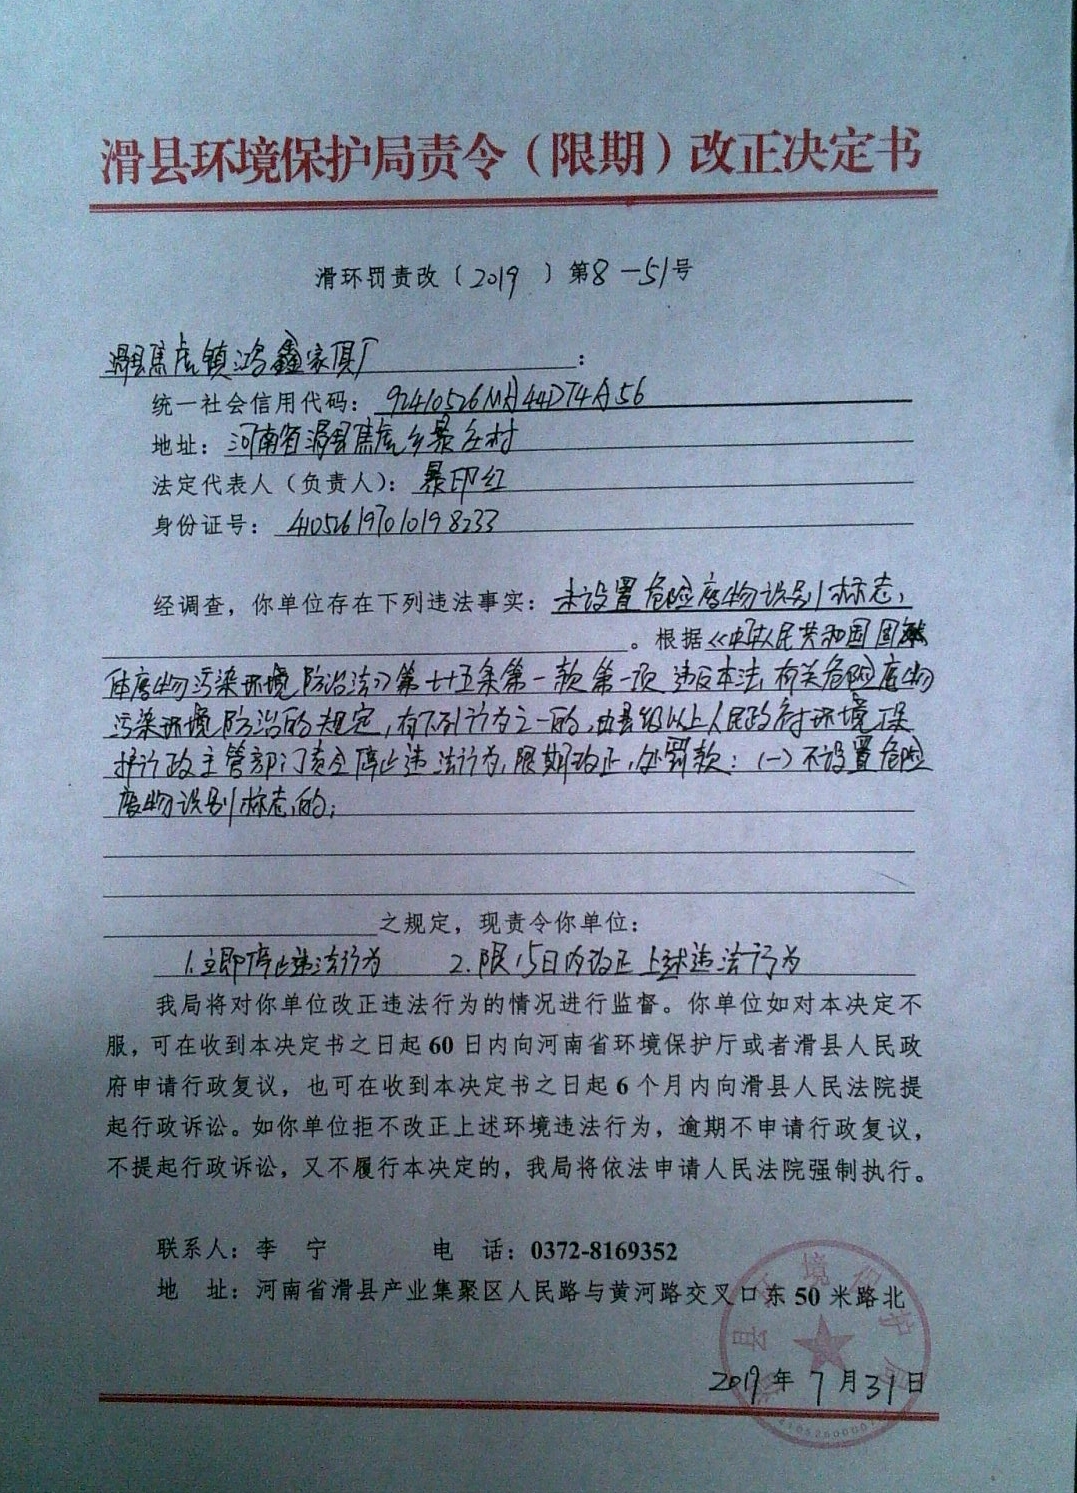 滑县环境保护局责令（限期）改正决定书
滑环罚责改〔2019 〕第8-51号
滑县焦虎镇鸿鑫家俱厂：
统一社会信用代码：92410526MA44DT4A56
地址：河南省滑县焦虎乡暴庄村
法定代表人（负责人）：暴印红
身份证号：410526197010198233
经调查，你单位存在下列违法事实：未设置危险废物识别标志，
。根据《中华人民共和国固
体废物污染环境防治法》第七十五条第一款第一项 违反本法有关危险废物
污染环境防治的规定，有下列行为之一的，由县级以上人民政府环境保
护行政主管部门责令停止违法行为，限期改正，处罚款：(一)不设置危险
废物识别标志的；
之规定，现责令你单位：
1.立即停止违法行为 2.限15日内改正上述违法行为
我局将对你单位改正违法行为的情况进行监督。你单位如对本决定不
服，可在收到本决定书之日起60日内向河南省环境保护厅或者滑县人民政
府申请行政复议，也可在收到本决定书之日起6个月内向滑县人民法院提
起行政诉讼。如你单位拒不改正上述环境违法行为，逾期不申请行政复议，
不提起行政诉讼，又不履行本决定的，我局将依法申请人民法院强制执行。
联系人：李 宁 电 话：0372-8169352
地 址：河南省滑县产业集聚区人民路与黄河路交叉口东50米路北
2019年7月31日
滑县环境保护局